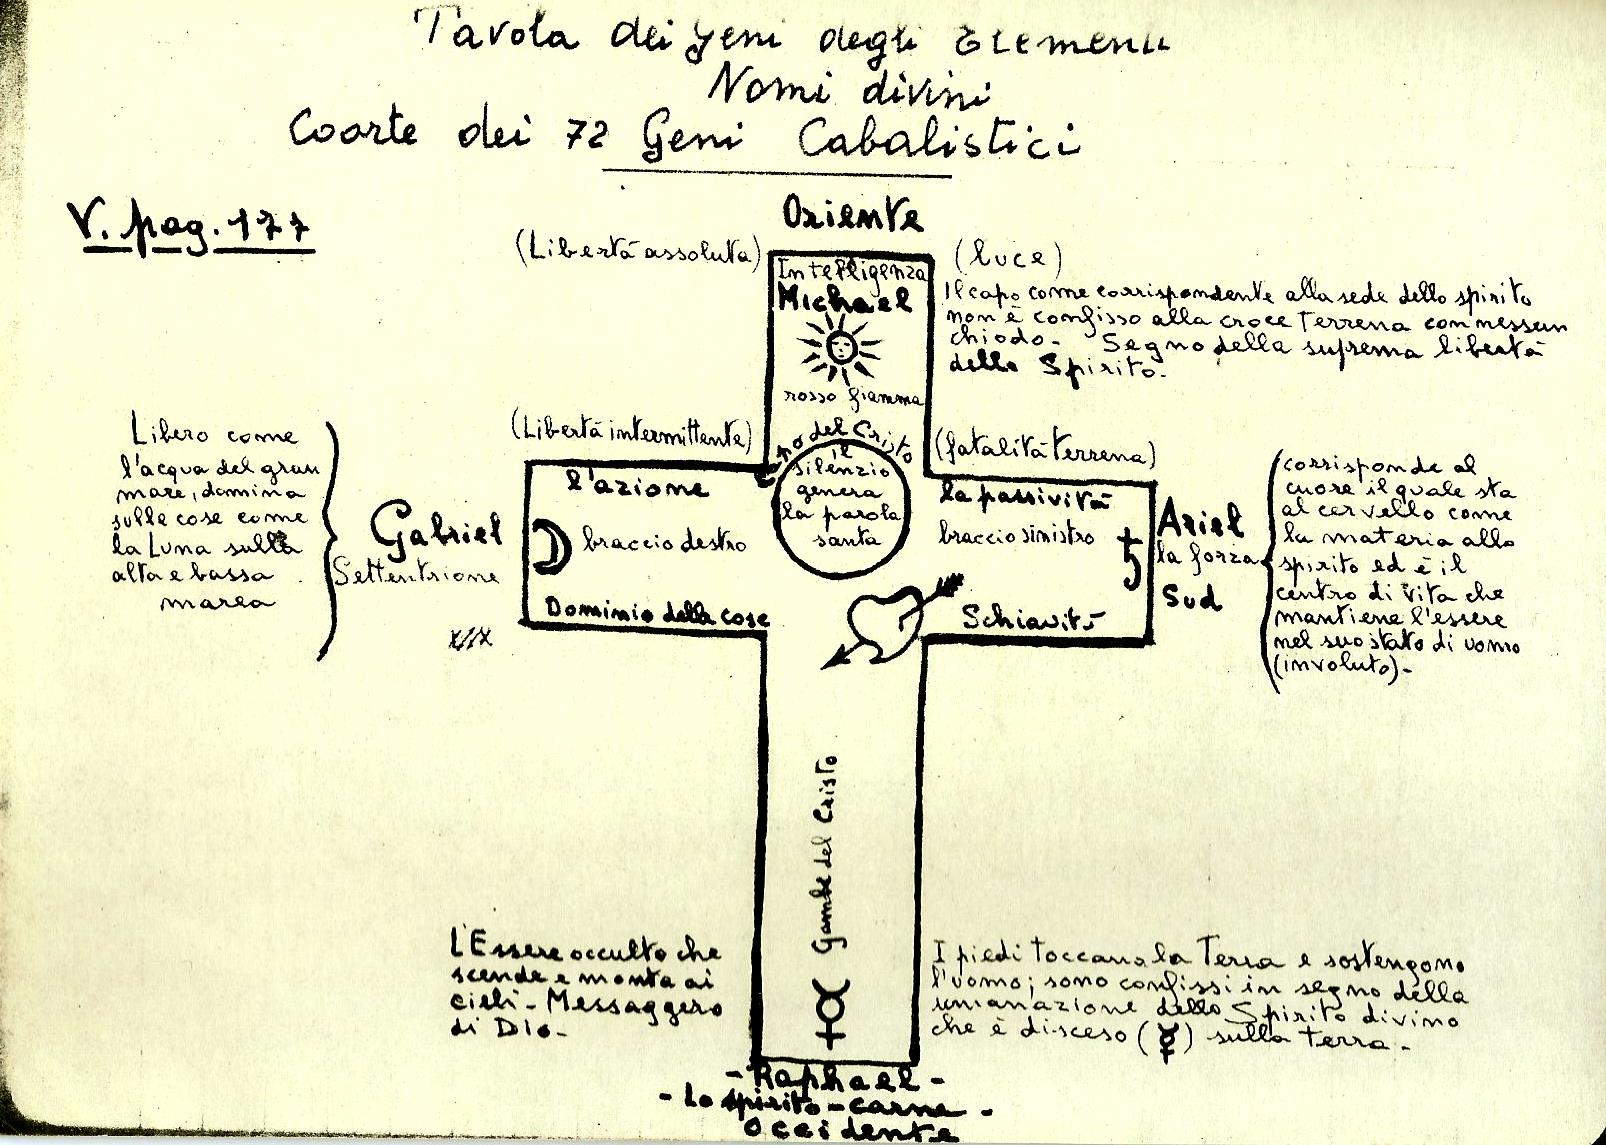 Tavola dei Geni degli Elementi
Nomi divini
Coorte dei 72 Geni Cabalistici
V. pag. 177
Oriente
(Libertà assoluta)
(luce)
Intelligenza
Michael
rosso fiamma
Il capo come corrispondente alla sede dello spirito
non è confisso alla croce terrena con nessun
chiodo - Segno della suprema libertà
dello Spirito.
(Libertà intermittente)
(fatalità terrena)
Libero come
l'acqua del gran
mare, domina
sulle cose come
la Luna sulla
alta e bassa
marea
Gabriel
Settentrione
l'azione
braccio destro
Dominio delle cose
del Cristo
il
silenzio
genera
la parola
santa
la passività
braccio sinistro
Schiavitù
Ariel
la forza
Sud
corrisponde al
cuore il quale sta
al cervello come
la materia allo
spirito ed è il
centro di vita che
mantiene l'essere
nel suo stato di uomo
(involuto)-
Gambe del Cristo
L'Essere occulto che
scende e monta ai
cieli - Messaggero
di Dio -
I piedi toccano la Terra e sostengono
l'uomo; sono confissi in segno della
umanazione dello Spirito divino
che è disceso (☿) sulla terra -
- Raphael -
- Lo spirito - carne -
Occidente